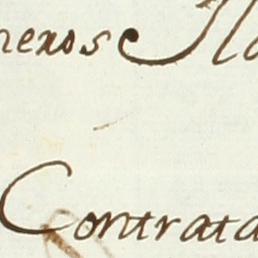 nexos
Contrata